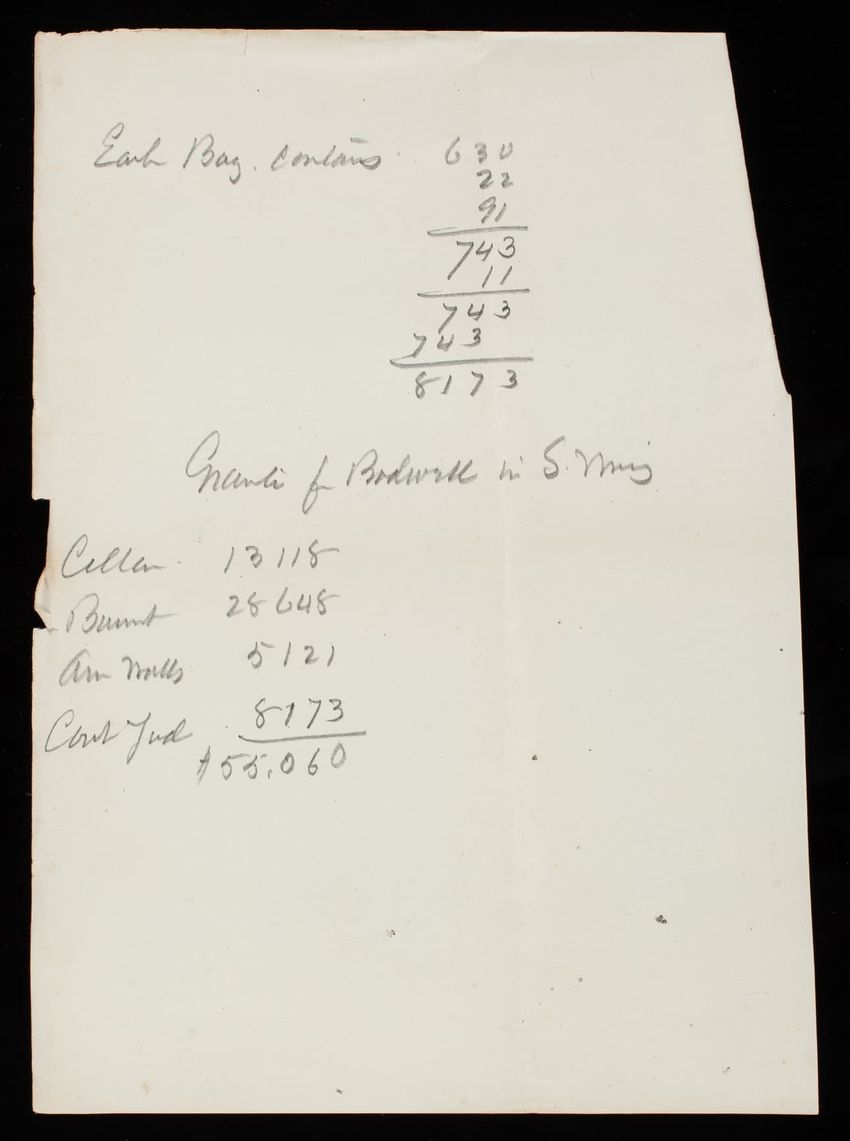 Each Bay. contains 630
22
91
743
11
743
743
8173
Granite for Bodwell in S. Wing
Cellar 13118
Basmt 28648
Arm Walls 5121
Court Yad 8173
$55.060